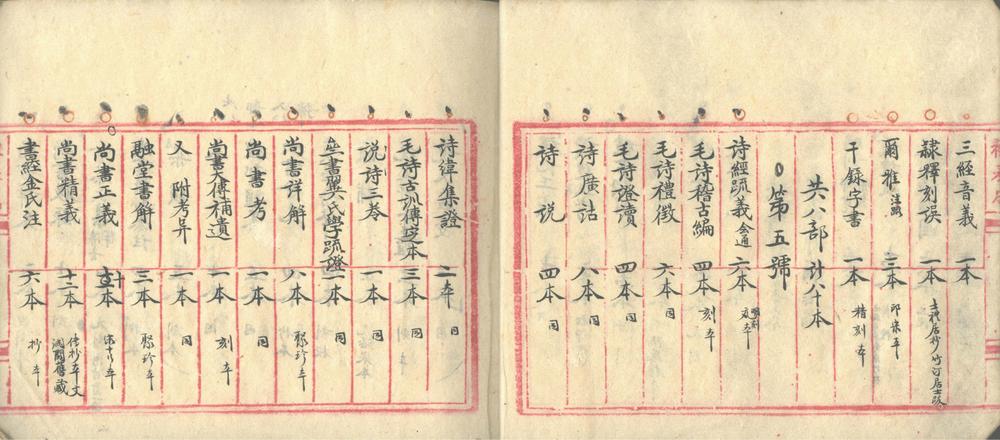 三經音義 一本
隸釋刻誤 一本 士禮居抄 竹汀居士跋
爾雅 注疏 三本 印柒本
干錄字書 一本 精刻本
共八部 計八十本
第五號
詩經疏義 會通 六本 明刻
毛詩稽古編 四本 刻本
毛詩禮徵 六本 同
毛詩證讀 四本 同
詩廣詁 八本 同
詩說 四本 同
詩緯集證 二本 同
毛詩古訓傳定本 三本 刻本
說詩三卷 一本 同
翼氏學疏證 一本 同
尚書詳解 八本 聚珍本
尚書考 一本 同
尚書大傳補遺 一本 刻本
又 附考異 一本 同
融堂書解 三本 聚珍本
尚書正義 本 宋十行本
尚書精義 十二本 傳抄本文瀾閣舊藏
書經金氏注 六本 抄本